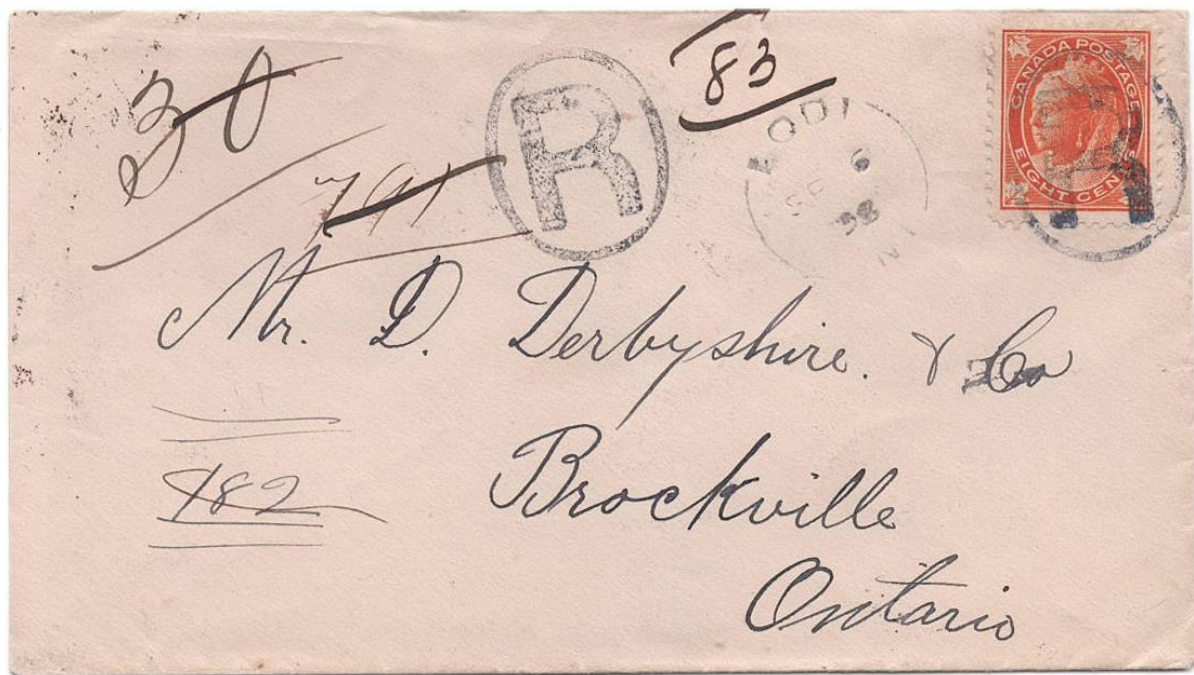 30
83
R
LODI
SP 6
98
CANADA POSTAGE
EIGHT CENTS
R
791
Mr. D. Derbyshire. & Co
482
Brockville
Ontario